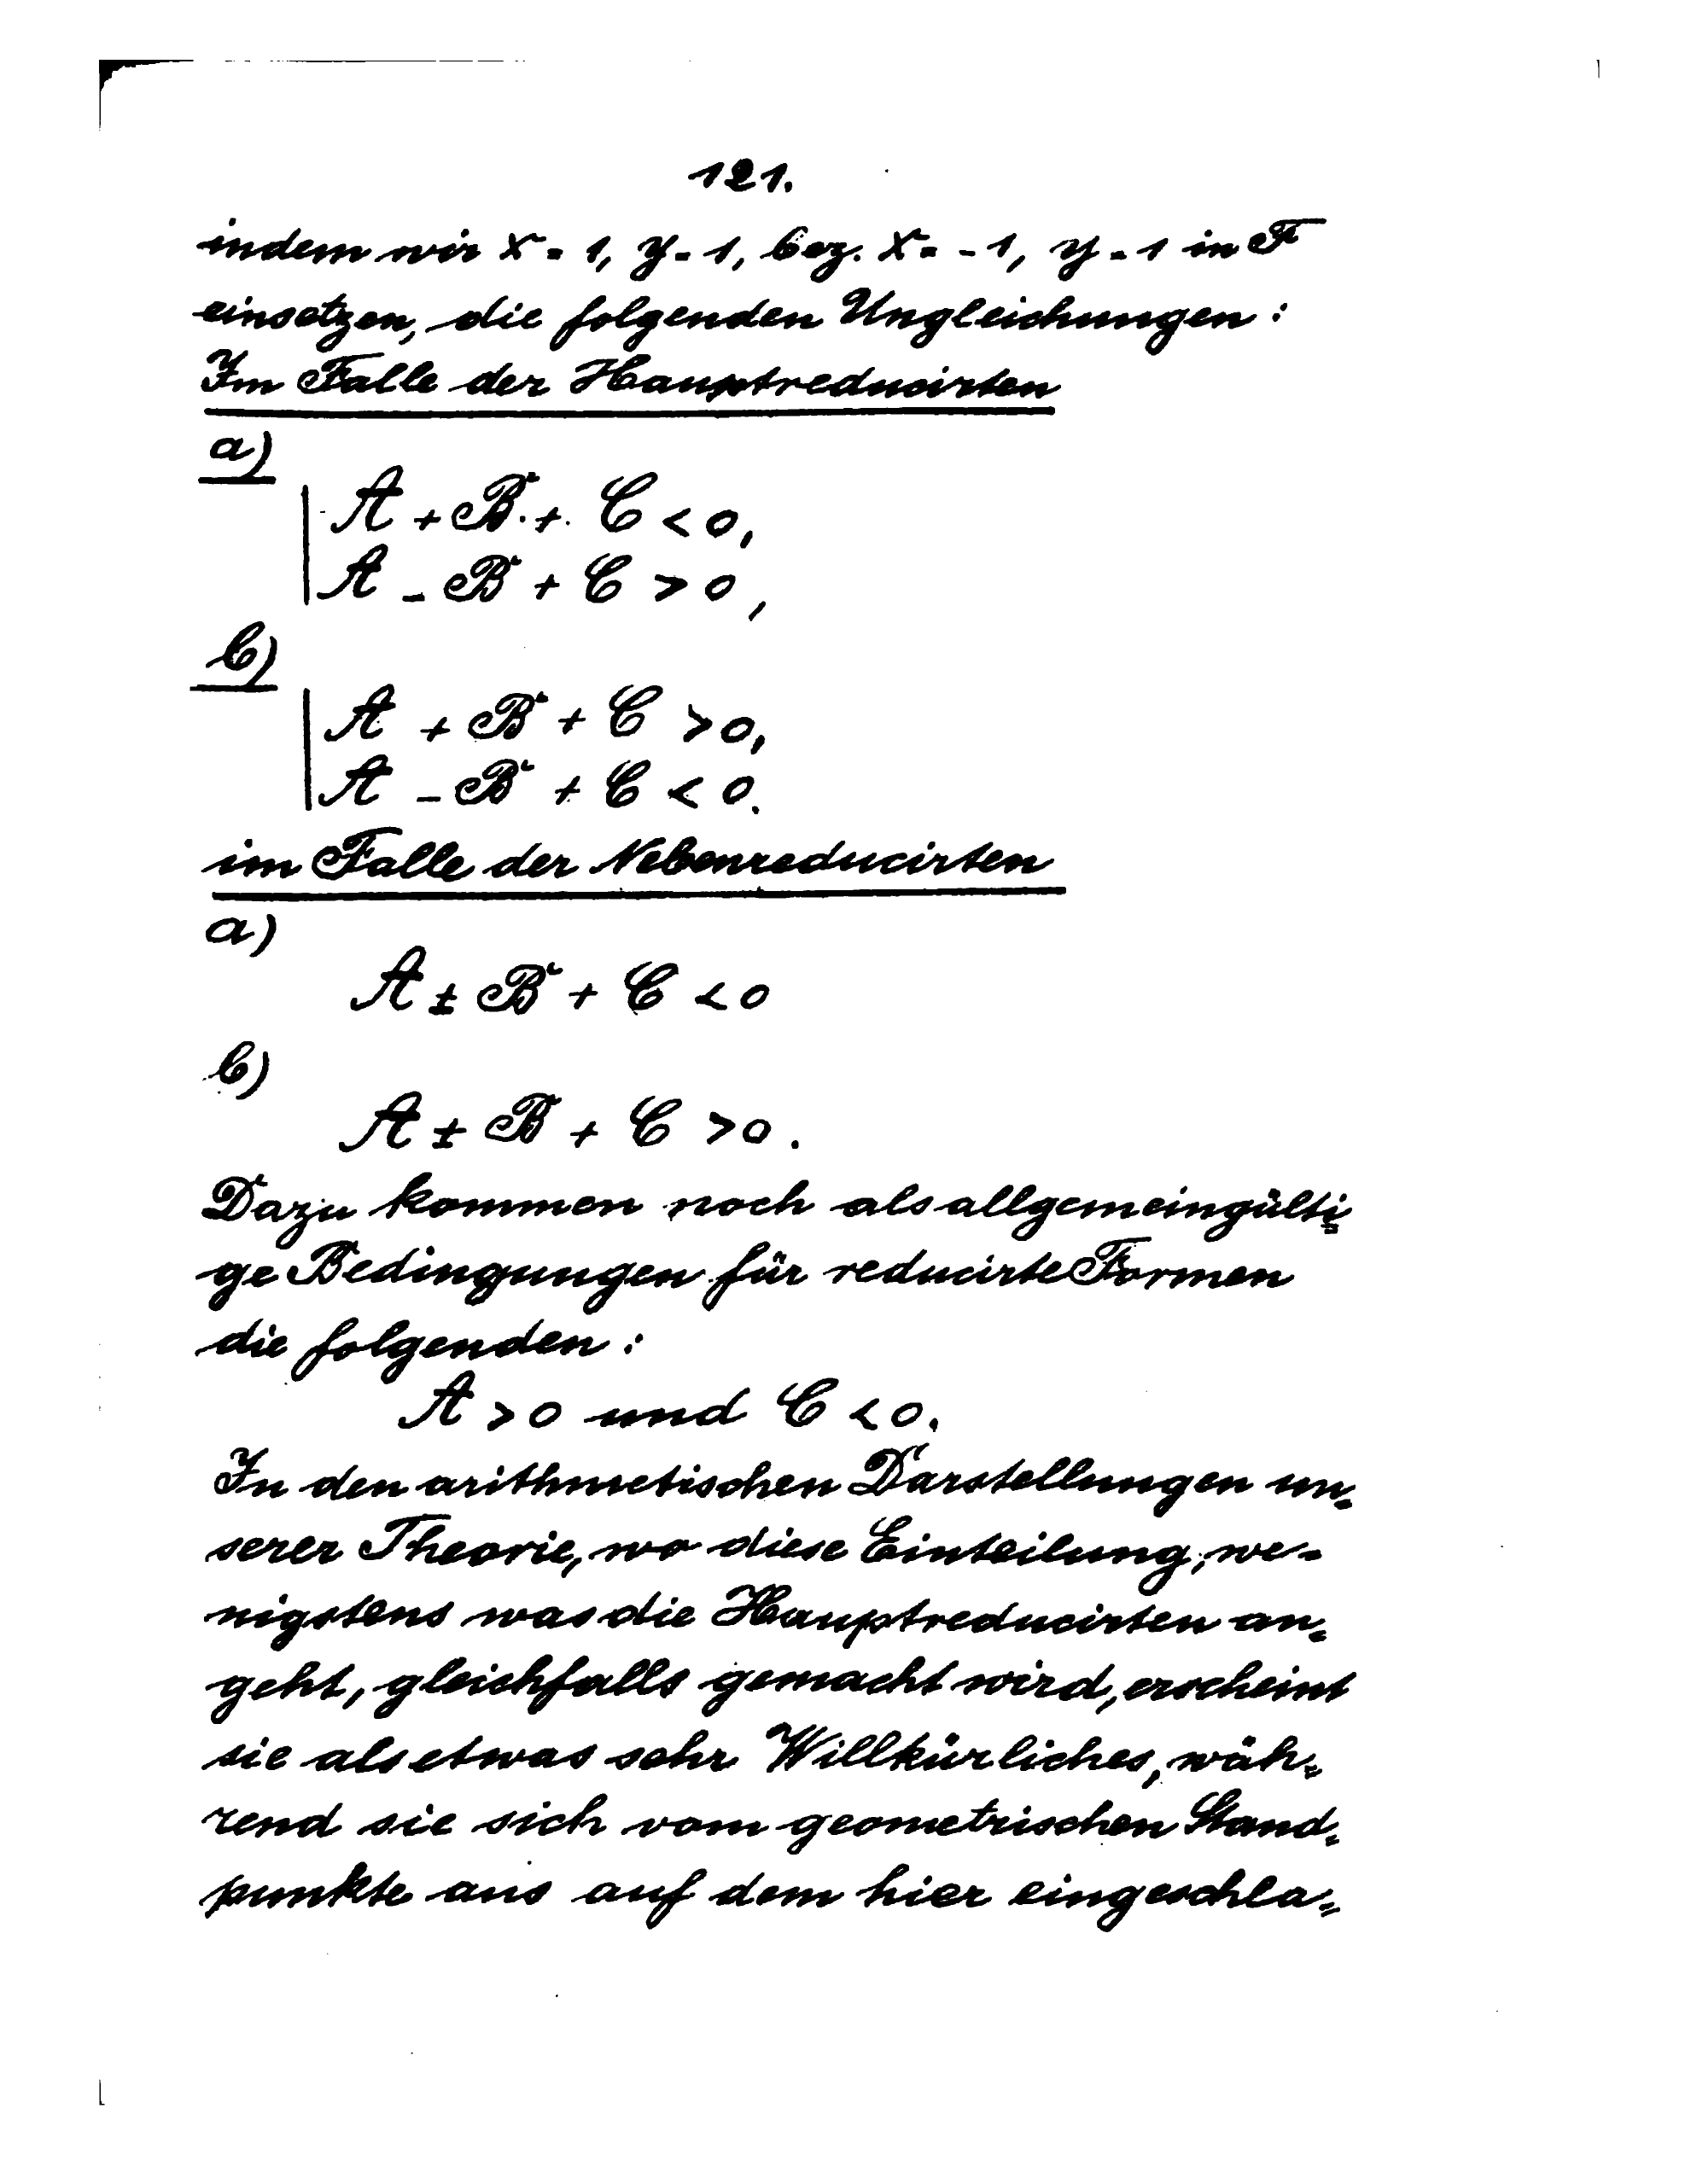 121.
indem wir X = 1, y = 1, bez. X = - 1, y = 1 in F
einsetzen, die folgenden Ungleichungen :
Im Falle der Hauptreducirten
a)
A + B + C < 0,
A - B + C > 0,
b)
A + B + C > 0,
A - B + C < 0.
im Falle der Nebenreducirten
a)
A ± B + C < 0
b)
A ± B + C > 0.
Dazu kommen noch als allgemeingülti=
ge Bedingungen für reducirte Formen
die folgenden :
A > 0 und C < 0.
In den arithmetischen Darstellungen un=
serer Theorie, wo diese Einteilung, we=
nigstens was die Hauptreducirten an=
geht, gleichfalls gemacht wird, erscheint
sie als etwas sehr Willkürliches, wäh=
rend sie sich vom geometrischen Stand=
punkte aus auf dem hier eingeschla=